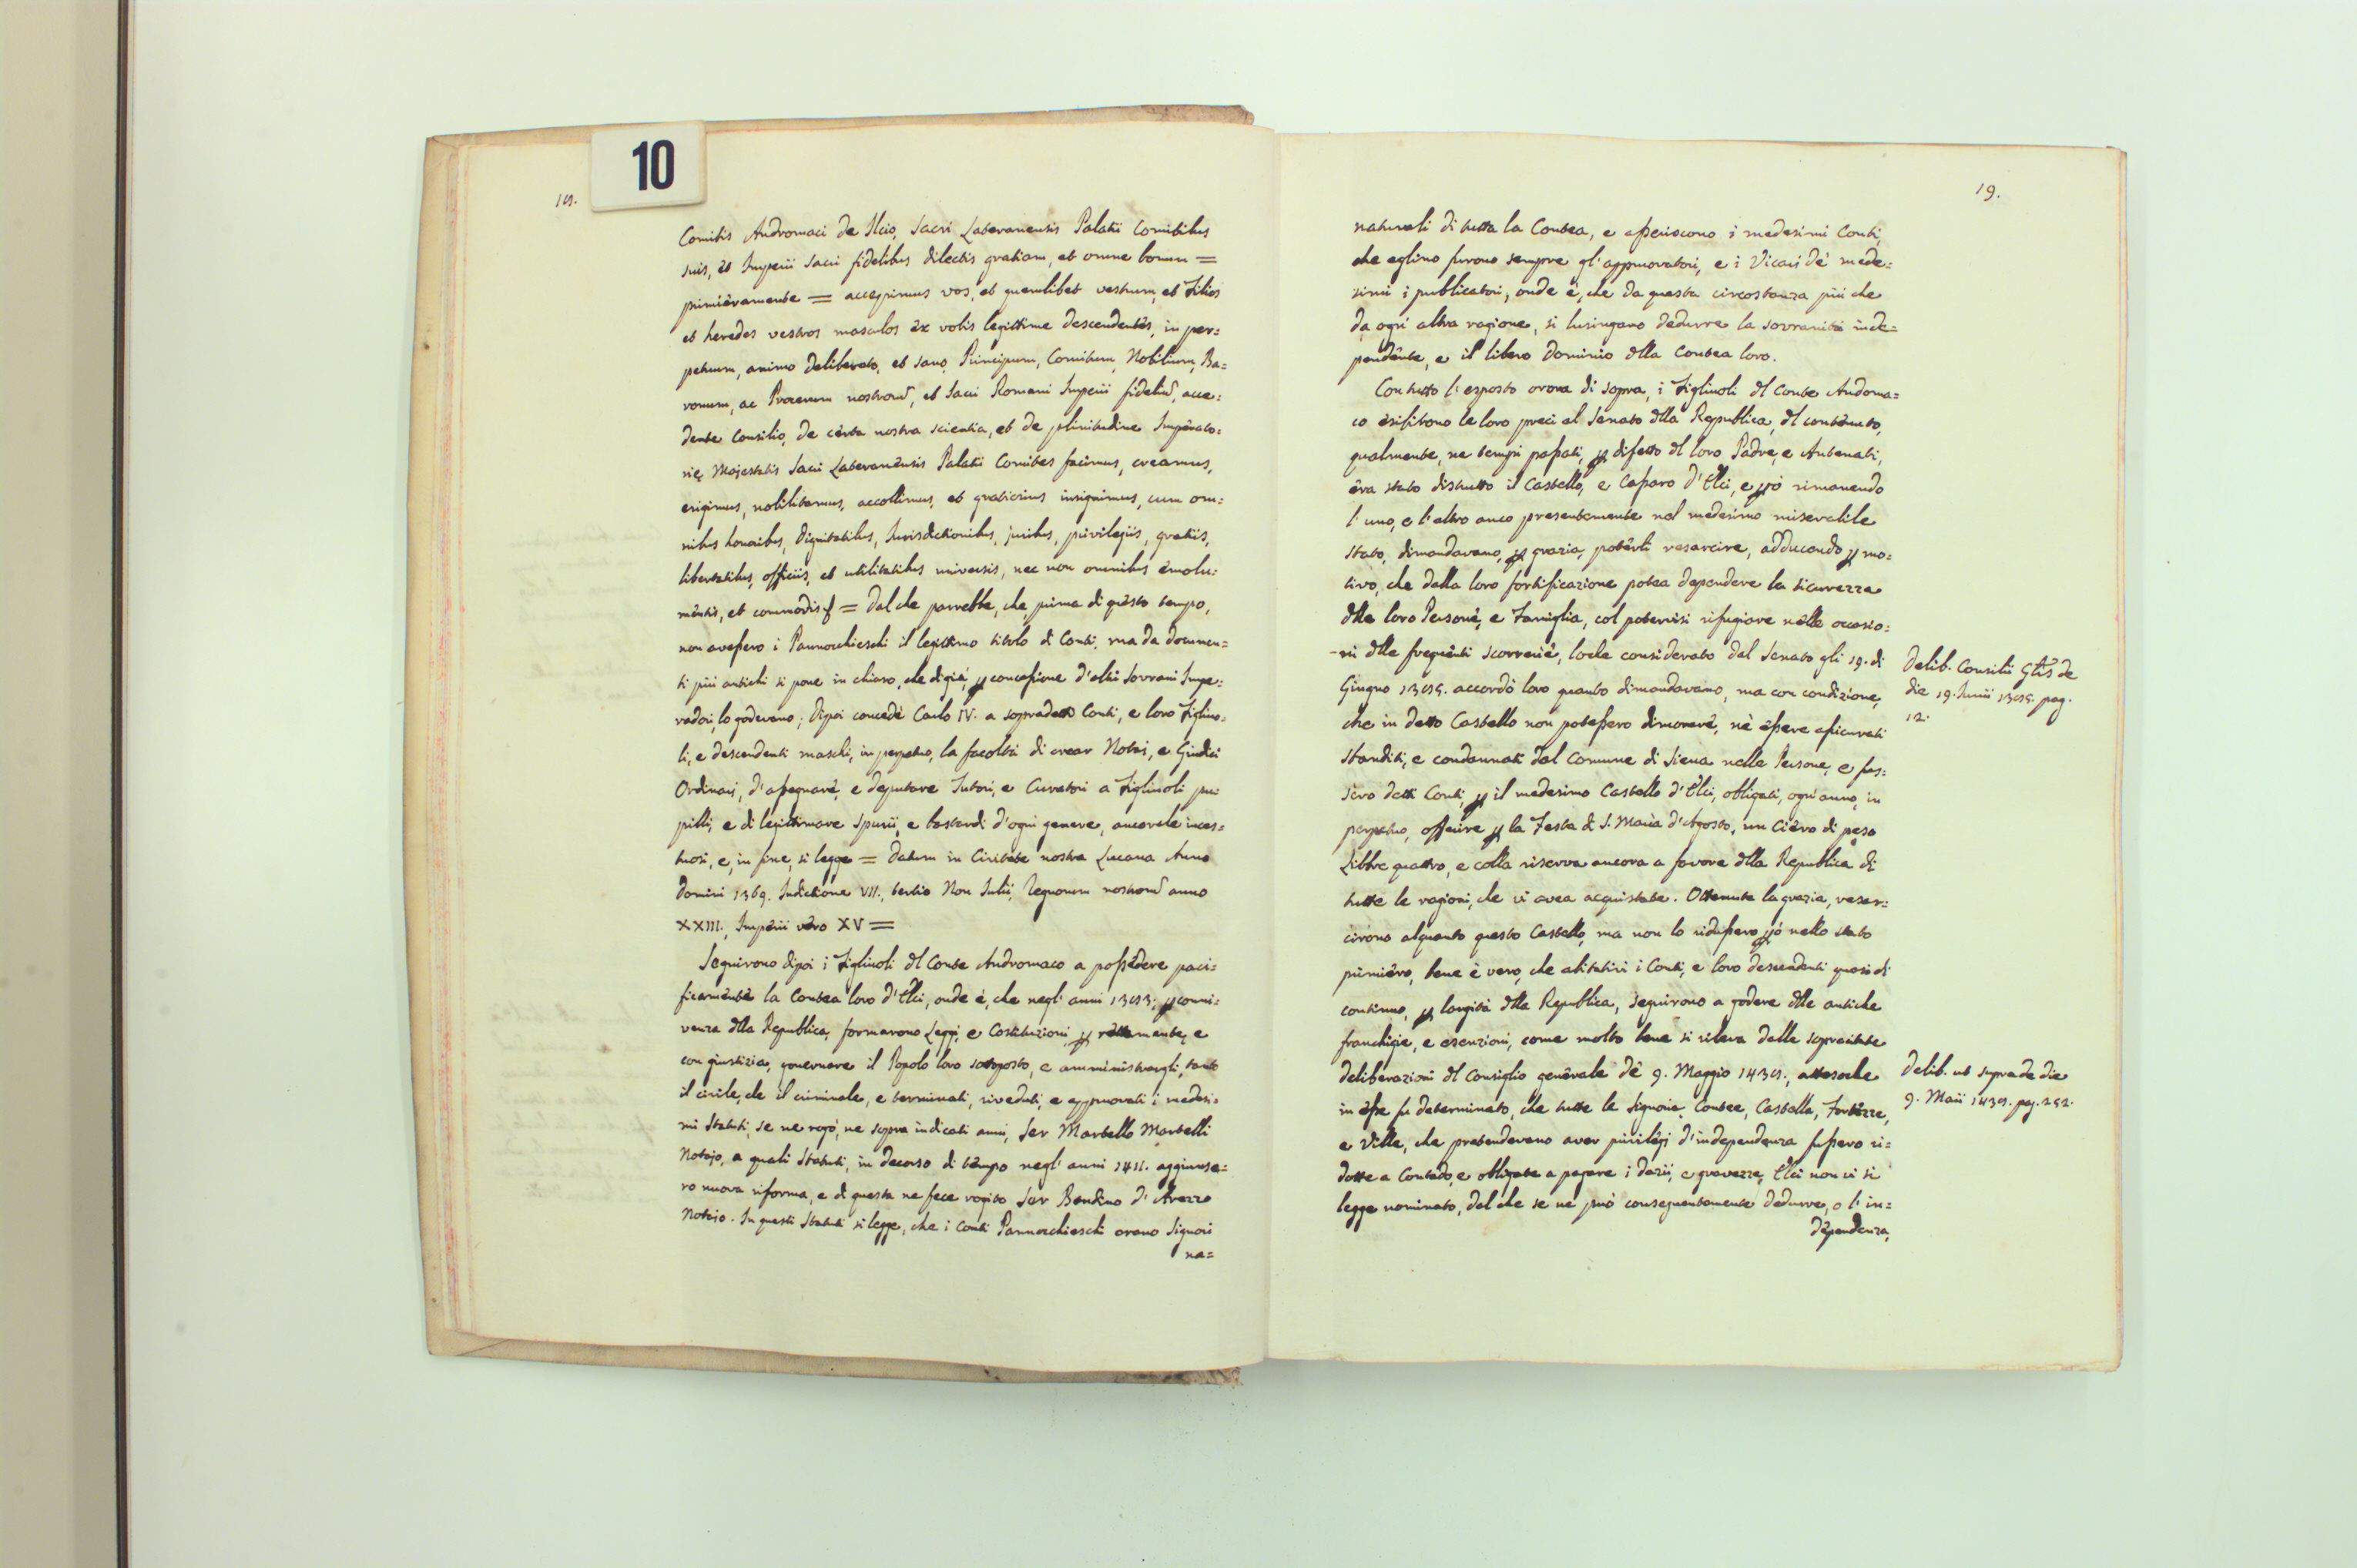 18.
10
Comitis Andromaci de Ilcio, Sacri Lateranensis Palatii Comitibus
suis, et Imperii Sacri fidelibus dilectis gratiam, et omne bonum =
primieramente = accepimus vos, et quemlibet vestrum, et Filios
et heredes vestros masculos ex vobis legittime descendentes, in per=
petuum, animo deliberato, et sano, Principum, Comitum, Nobilium, Ba=
ronum, ac Procerum nostrorũ, et Sacri Romani Imperii fideliũ, acce=
dente Consilio, de certa nostra scientia, et de plenitudine Imperato=
rię Majestatis Sacri Lateranensis Palatii Comites facimus, creamus,
erigimus, nobilitamus, accollimus, et gratiosius insignimus, cum om=
nibus honoribus, Dignitatibus, Jurisdictionibus, juribus, privilegiis, gratiis,
libertatibus, officiis, et utilitatibus universis, nec non omnibus emolu=
mentis, et commodis = Dal che parrebbe, che, prima di questo tempo,
non avessero i Pannocchieschi il legittimo titolo di Conti, ma da documen=
ti più antichi si pone in chiaro, che di già, p concessione d'altri Sovrani Impe=
radori, lo godevano; Dipoi concedè Carlo IV. a sopradetti Conti, e loro Figliuo=
li, e descendenti maschi, in perpetuo, la facoltà di crear Notai, e Giudici
Ordinari, d'assegnare, e deputare Tutori, e Curatori a Figliuoli pu=
pilli, e di legittimare Spurii, e bastardi d'ogni genere, ancorche inces=
tuosi, e, in fine, si legge = Datum in Civitate nostra Lucana Anno
Domini 1369. Indictione VII., tertio Non Julii, Regnorum nostrorũ anno
XXIII., Imperii vero XV =
Seguirono dipoi i Figliuoli dl Conte Andromaco a possedere paci=
ficamente la Contea loro d'Elci, onde è, che negl'anni 1383; p conni=
venza dlla Republica, formarono Leggi, e Costituzioni p rettamente, e
con giustizia, governare il Popolo loro sottoposto, e amministrargli, tanto
il civile, che il criminale, e terminati, riveduti, e approvati i medesi=
mi Statuti, se ne rogò, ne sopra indicati anni, Ser Martello Martelli
Notajo, a quali Statuti, in decorso di tempo negl'anni 1411. aggiunse=
ro nuova riforma, e di questa ne fece rogito Ser Bandino d'Arezzo
Notajo. In questi Statuti si legge, che i Conti Pannocchieschi erano Signori
na=
19.
naturali di tutta la Contea, e asseriscono i medesimi Conti,
che eglino furono sempre gl'approvatori, e i Vicarj de' mede=
simi i publicatori, onde è, che da questa circostanza più che
da ogni altra ragione, si lusingano dedurre la sovranità inde=
pendente, e il libero dominio dlla Contea loro.
Con tutto l'esposto orora di sopra, i Figliuoli dl Conte Andoma=
co esibirono le loro preci al Senato dlla Republica, dl contenuto,
qualmente, ne tempi passati, p difetto dl loro Padre, e Antenati,
era stato distrutto il Castello, e Cassaro d'Elci, e pò rimanendo
l'uno, e l'altro anco presentemente nel medesimo miserabile
stato, dimandavano, p grazia, poterli resarcire, adducendo p mo=
tivo, che dalla loro fortificazione potea dependere la sicurezza
dlle loro Persone, e Famiglia, col potervisi rifugiare nelle occasio=
-ni dlle frequenti scorrerie, loche considerato dal Senato gli 19. di
Giugno 1385. accordò loro quanto dimandavano, ma con condizione,
che in detto Castello non potessero dimorare, nè essere assicurati
Sbanditi, e condannati dal Comune di Siena nelle Persone, e fus=
sero detti Conti, p il medesimo Castello d'Elci, obligati, ogni anno, in
perpetuo, offerire p la Festa di S. Maria d'Agosto, un Ciero di peso
Libbre quattro, e colla riserva ancora a favore dlla Republica di
tutte le ragioni, che vi avea acquistate. Ottenuta la grazia, resar=
cirono alquanto questo Castello, ma non lo ridussero pò nello stato
primiero, bene è vero, che abitativi i Conti, e loro descendenti quasi di
continuo, p largità dlla Republica, seguirono a godere dlle antiche
franchigie, e esenzioni, come molto bene si rileva dalle sopracitate
deliberazioni dl Consiglio generale de' 9. Maggio 1438., attesoche
in esse fu determinato, che tutte le Signorie, Contee, Castella, Fortezze,
e Ville, che pretendevano aver privilegj d'independenza fussero ri=
dotte a Contado, e obligate a pagare i dazii, e gravezze, Elci non vi si
legge nominato, dal che se ne può conseguentemente dedurre, o l'in=
dependenza,
Delib. Consilii Gtis de
die 19. Junii 1385. pag.
12.
Delib. ut supra de die
9. Maii 1438. pag. 252.